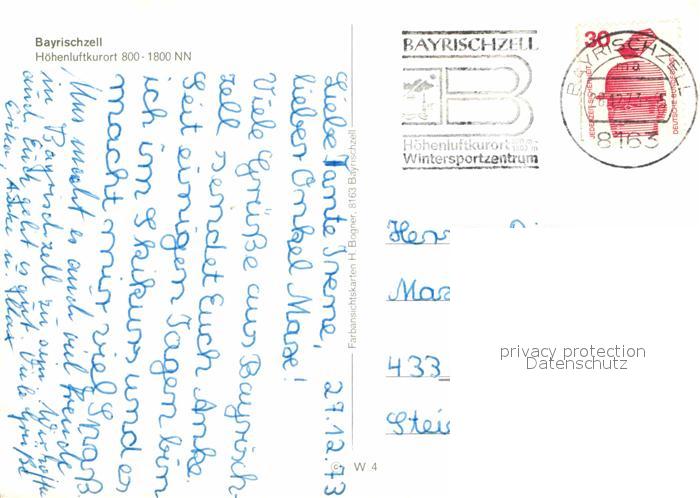 Bayrischzell
Höhenluftkurort 800 - 1800 NN
BAYRISCHZELL
B
Höhenluftkurort
Wintersportzentrum
30
JEDERZEIT SICHERHEIT
DEUTSCHE BUNDESPOST
BAYRISCHZELL
8163
27.12.73
Liebe Tante Irene,
lieber Onkel Max!
Viele Grüße aus Bayrisch-
zell sendet Euch Anke.
Seit einigen Tagen bin
ich im Skikurs und es
macht mir viel Spaß.
Uns macht es auch viel Freude
in Bayrischzell zu sein. Wir hoffen
auch Euch geht es gut. Viele Grüße
Anke u. Max
Farbansichtskarten H. Bogner, 8163 Bayrischzell
© W 4
Herr
Max
433
Stei
privacy protection
Datenschutz